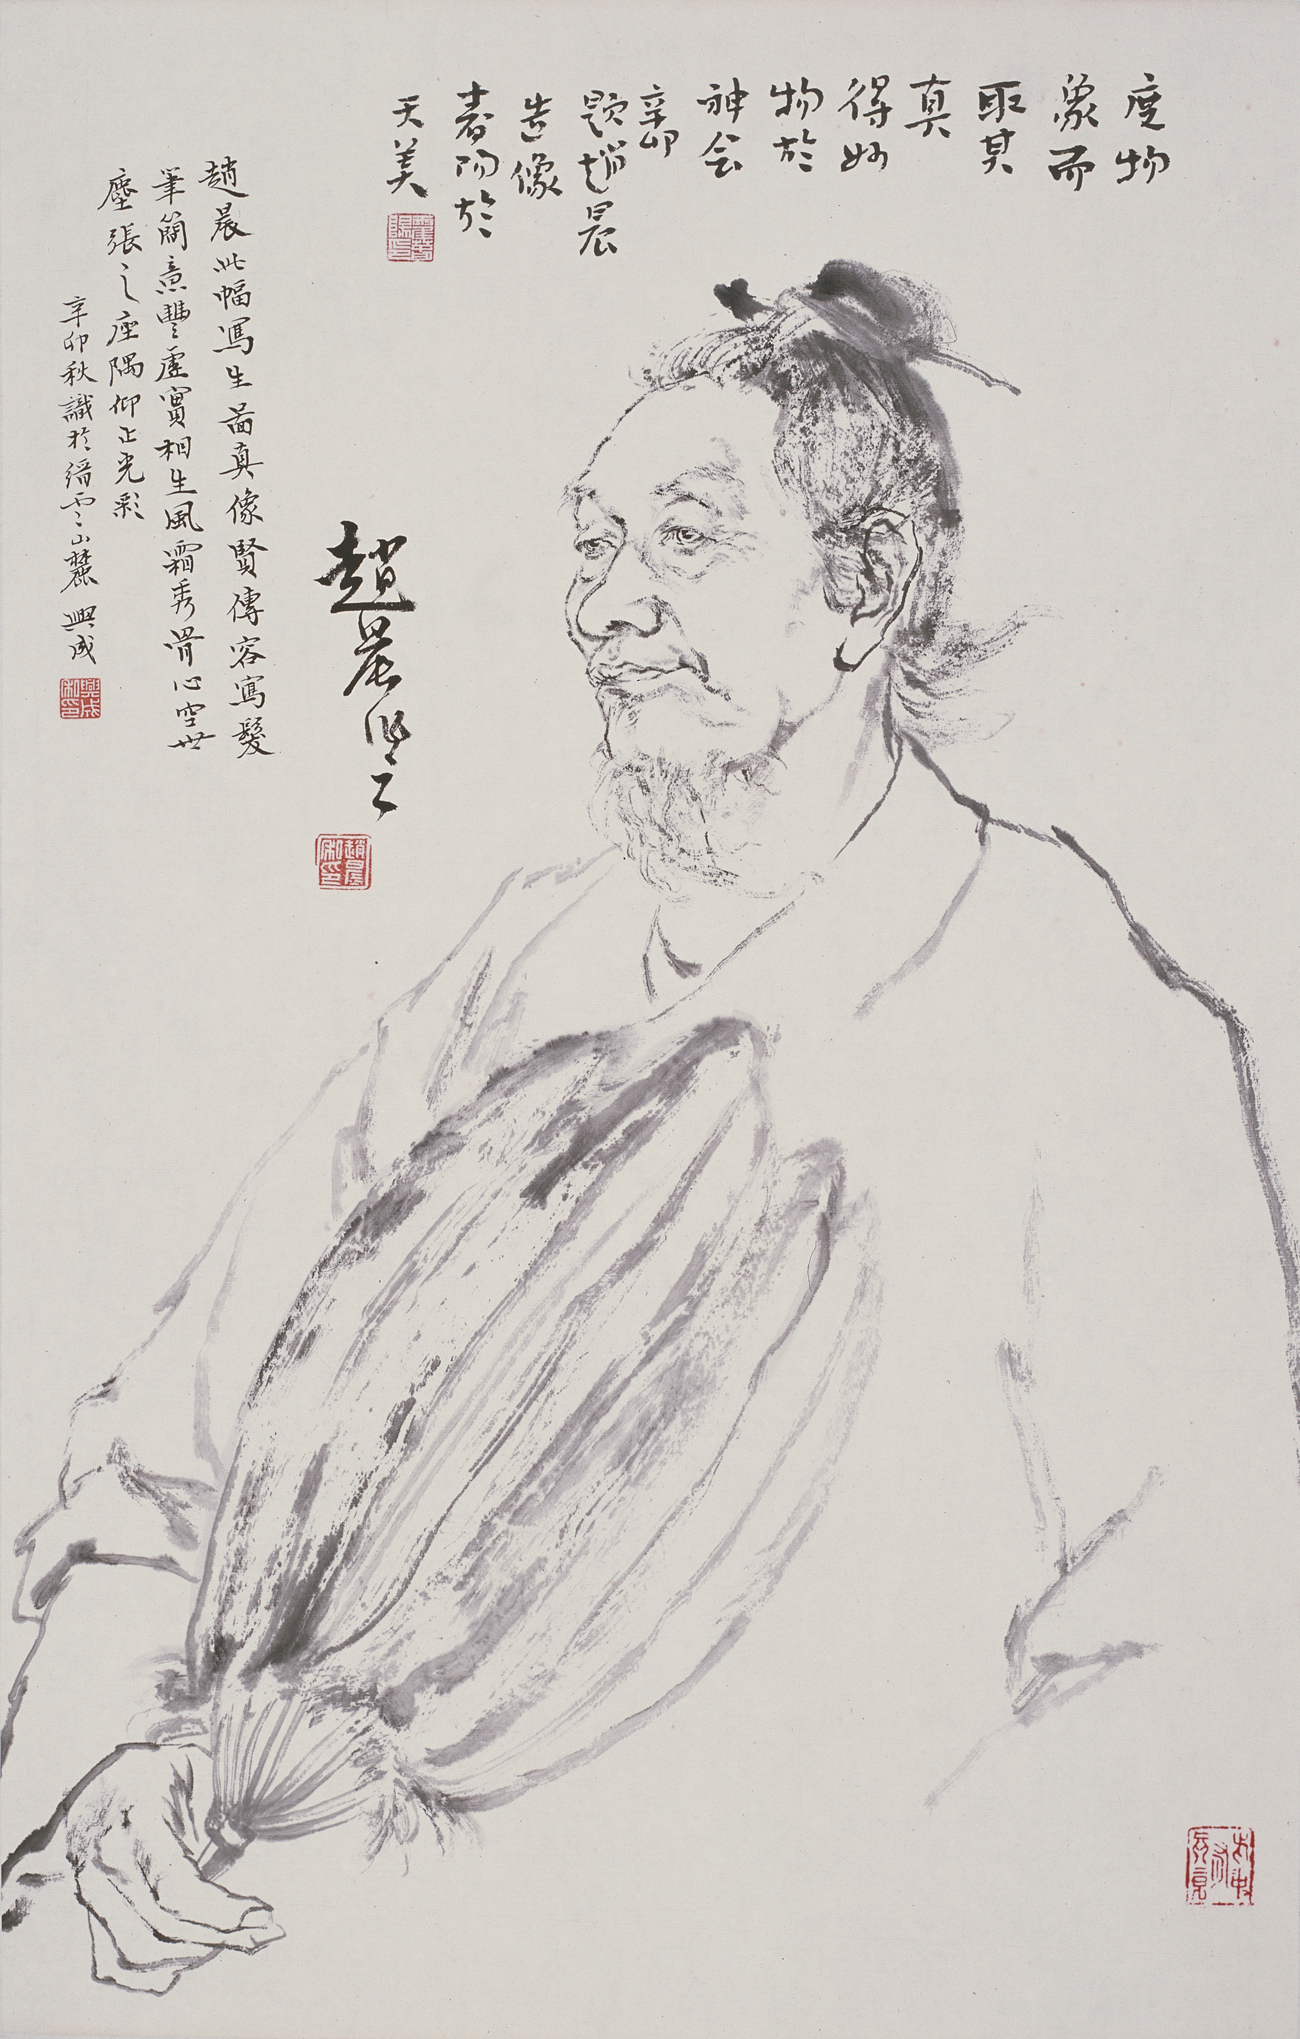 度物
象而
取其
真
得妙
物於
神会
辛卯
題趙晨
造像
春阳於
天美
趙晨作之
趙晨此幅寫生畾真像賢傳容寫髮
筆簡意豐虛實相生風霜秀骨心空世
塵張之座隅仰止光彩
辛卯秋識於縉雲山麓 興成
趙晨
興成